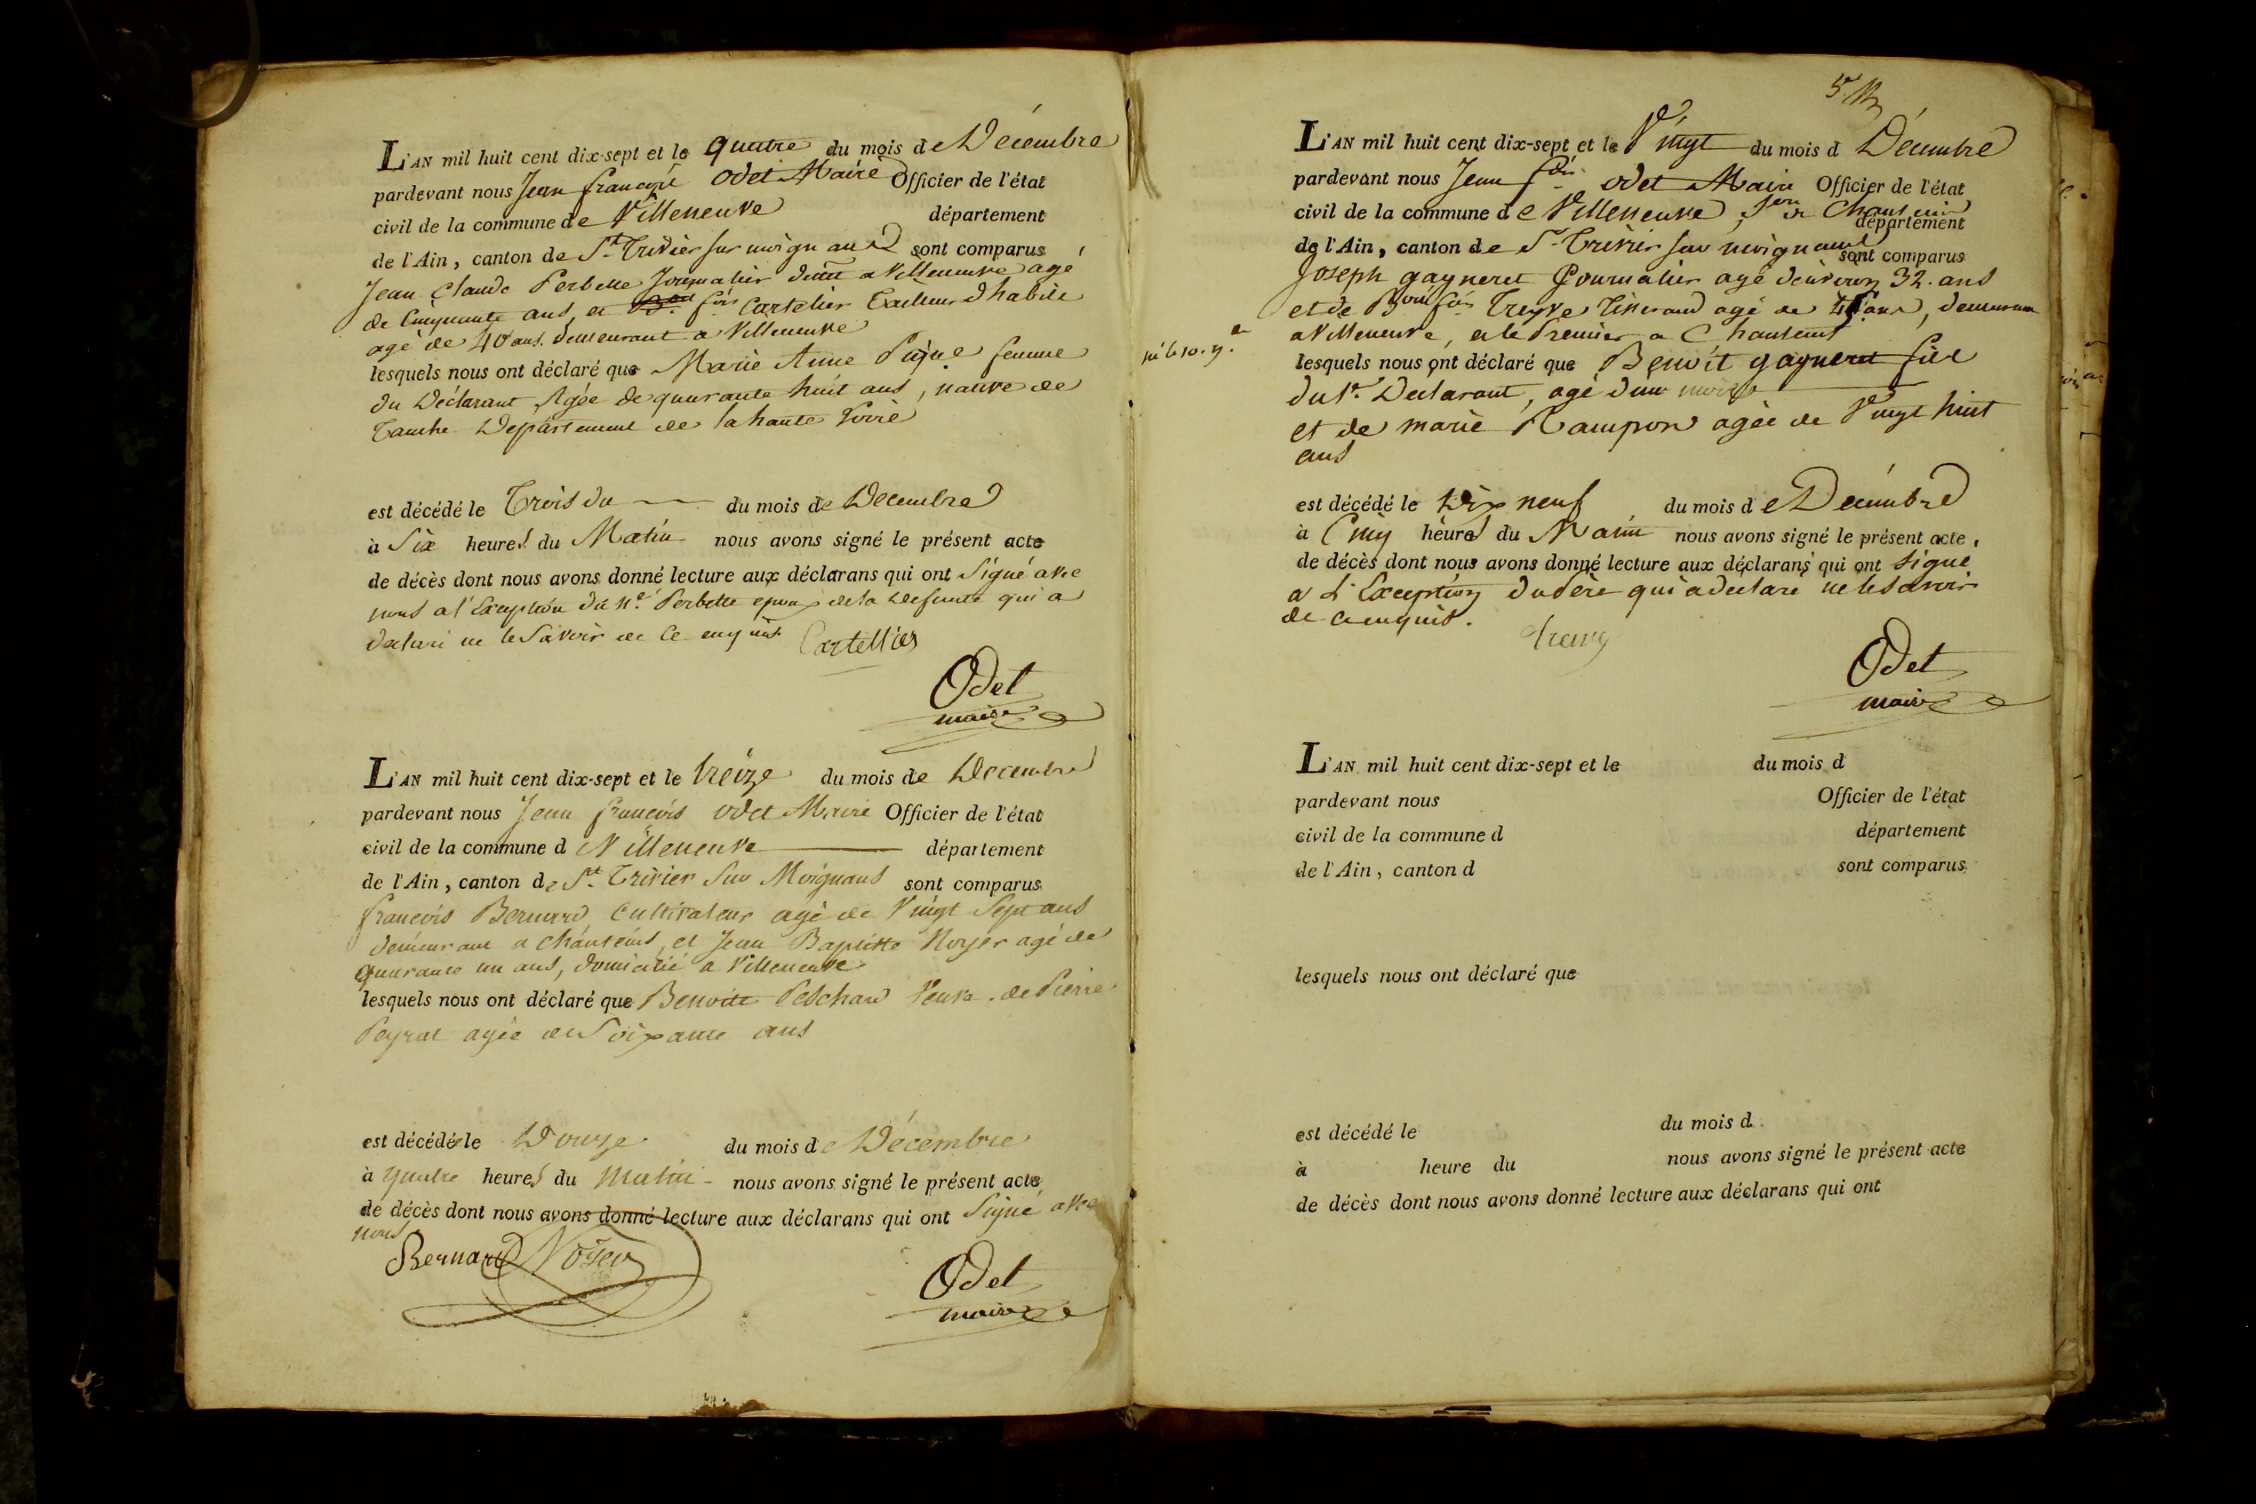 L'AN mil huit cent dix-sept et le quatre du mois de Décembre
pardevant nous Jean françois odet Maire Officier de l'état
civil de la commune de Villeneuve département
de l'Ain, canton de St. Trivier sur moignand sont comparus
Jean Claude Perbette Journalier demt a Villeneuve agé
de Cinquante ans, et fois Cartelier Tailleur d'habits
agé de 40 ans. demeurant a Villeneuve
lesquels nous ont déclaré que Marie Anne femme
du Déclarant Agée de quarante huit ans, native de
Département de la haute Loire
est décédé le Trois du du mois de Decembre
à Six heures du Matin nous avons signé le présent acte
de décès dont nous avons donné lecture aux déclarans qui ont Signé avec
nous a l'Exception du Perbette epoux de la defunte qui a
declaré ne le Savoir de ce enquis Cartellier
Odet
maire
L'AN mil huit cent dix-sept et le treize du mois de Decembre
pardevant nous Jean françois odet Maire Officier de l'état
civil de la commune d Villeneuve département
de l'Ain, canton de St. Trivier Sur Moignans sont comparus
françois Bernard Cultivateur agé de Vingt Sept ans
demeurant a Chanteins, et Jean Baptiste Noyer agé de
quarante un ans, domicilié a Villeneuve
lesquels nous ont déclaré que Benoite Veuve de Pierre
Peyrat agée de Soixante ans
est décédé le Douze du mois de Décembre
à quatre heures du Matin nous avons signé le présent acte
de décès dont nous avons donné lecture aux déclarans qui ont Signé avec
nous
Bernard Noyer
Odet
maire
L'AN mil huit cent dix-sept et le Vingt du mois d Décembre
pardevant nous Jean fois odet Maire Officier de l'état
civil de la commune de Villeneuve, Son de Chanteins département
de l'Ain, canton de St Trivier sur moignand sont comparus
Joseph gagneret Journalier agé d'environ 32. ans
et de fois Treyve Tisserand agé de ans, demeurant
a Villeneuve, et le Premier a Chanteins
lesquels nous ont déclaré que Benoit gagneret fils
du 1er Declarant, agé d'un mois
et de marie Rampon agée de Vingt huit
ans
est décédé le Dix neuf du mois de Decembre
à Cinq heures du Matin nous avons signé le présent acte,
de décès dont nous avons donné lecture aux déclarans qui ont signé
a L'Exception du Père qui a declaré ne le savoir
de ce enquis.
Odet
maire
L'AN mil huit cent dix-sept et le du mois d
pardevant nous Officier de l'état
civil de la commune d département
de l'Ain, canton d sont comparus
lesquels nous ont déclaré que
est décédé le du mois d
à heure du nous avons signé le présent acte
de décès dont nous avons donné lecture aux déclarans qui ont